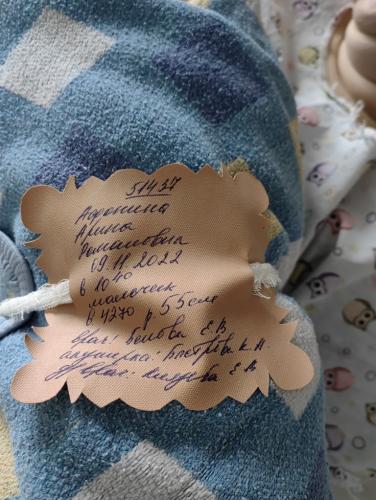 51437
Афонина
Арина
Романовна
19.11.2022
в 10 40
мальчик
в 4270 р. 55см
Врач: Белова Е В
акушерка: Быстрова К. А.
Врач: Е В